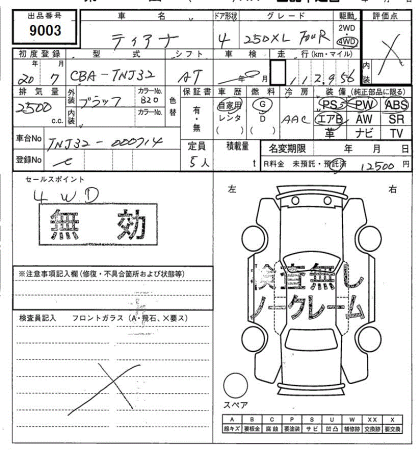 出品番号 車名 ドア形状 グレード 駆動 評価点
9003 ティアナ 4 250XL FOUR 2WD 4WD
初度登録 型式 シフト 車検 走行(km・マイル)
年 月 年 月
20 7 CBA-TNJ32 AT 112,956
排気量 外装 カラーNo. 色替 保証書 車歴 燃料 冷房 装備(純正部品に限る)
2500 c.c. ブラック B20 有・無 自家用 レンタ G D AAC PS PW ABS
内装 カラーNo. エアB AW SR
革 ナビ TV
車台No TNJ32-000714 定員 積載量 名変期限 年 月 日
登録No 5人 t R料金 未預託・預託済 12500円
セールスポイント
4WD
無効
左 右
※注意事項記入欄(修復・不具合箇所および状態等)
検査無し
ノークレーム
検査員記入 フロントガラス(A・飛石、X要ス)
スペア
A B C P S U W X XX
線キズ 要板金 腐蝕 要塗装 サビ 凹凸 補修跡 要交換 交換済